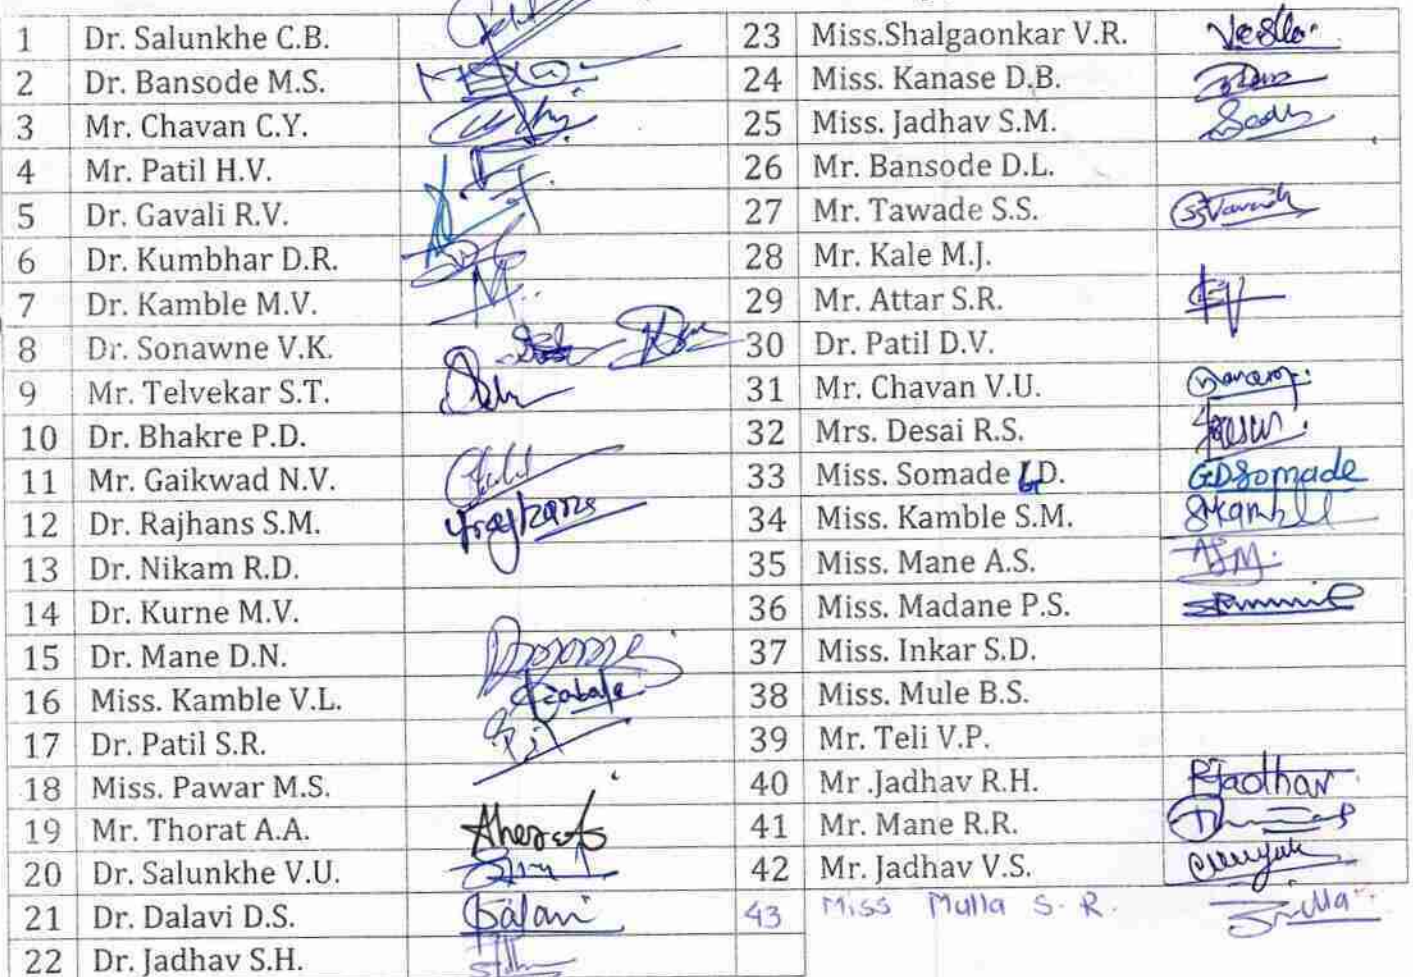 1 Dr. Salunkhe C.B.
2 Dr. Bansode M.S.
3 Mr. Chavan C.Y.
4 Mr. Patil H.V.
5 Dr. Gavali R.V.
6 Dr. Kumbhar D.R.
7 Dr. Kamble M.V.
8 Dr. Sonawne V.K.
9 Mr. Telvekar S.T.
10 Dr. Bhakre P.D.
11 Mr. Gaikwad N.V.
12 Dr. Rajhans S.M.
13 Dr. Nikam R.D.
14 Dr. Kurne M.V.
15 Dr. Mane D.N.
16 Miss. Kamble V.L.
17 Dr. Patil S.R.
18 Miss. Pawar M.S.
19 Mr. Thorat A.A.
20 Dr. Salunkhe V.U.
21 Dr. Dalavi D.S.
22 Dr. Jadhav S.H.
23 Miss.Shalgaonkar V.R.
24 Miss. Kanase D.B.
25 Miss. Jadhav S.M.
26 Mr. Bansode D.L.
27 Mr. Tawade S.S.
28 Mr. Kale M.J.
29 Mr. Attar S.R.
30 Dr. Patil D.V.
31 Mr. Chavan V.U.
32 Mrs. Desai R.S.
33 Miss. Somade G.D. GDSomade
34 Miss. Kamble S.M. SMKamble
35 Miss. Mane A.S. ASM.
36 Miss. Madane P.S.
37 Miss. Inkar S.D.
38 Miss. Mule B.S.
39 Mr. Teli V.P.
40 Mr .Jadhav R.H. RJadhav
41 Mr. Mane R.R.
42 Mr. Jadhav V.S.
43 Miss Mulla S. R.